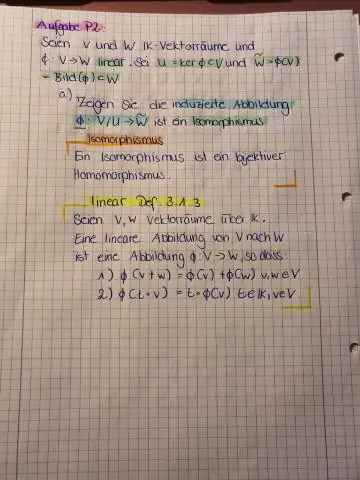 Aufgabe P2
Seien V und W IK-Vektorräume und
ϕ: V→W linear. Sei U = ker ϕ ⊂ V und W̃ = ϕ(V)
= Bild(ϕ) ⊂ W
a) Zeigen Sie: die induzierte Abbildung
ϕ: V/U → W̃ ist ein Isomorphismus
Isomorphismus
Ein Isomorphismus ist ein bijektiver
Homomorphismus.
linear Def. 3.1.3
Seien V, W Vektorräume über IK.
Eine lineare Abbildung von V nach W
ist eine Abbildung ϕ: V→W, so dass:
1) ϕ(v+w) = ϕ(v) + ϕ(w) v,w∈V
2) ϕ(t∘v) = t∘ϕ(v) t∈IK, v∈V